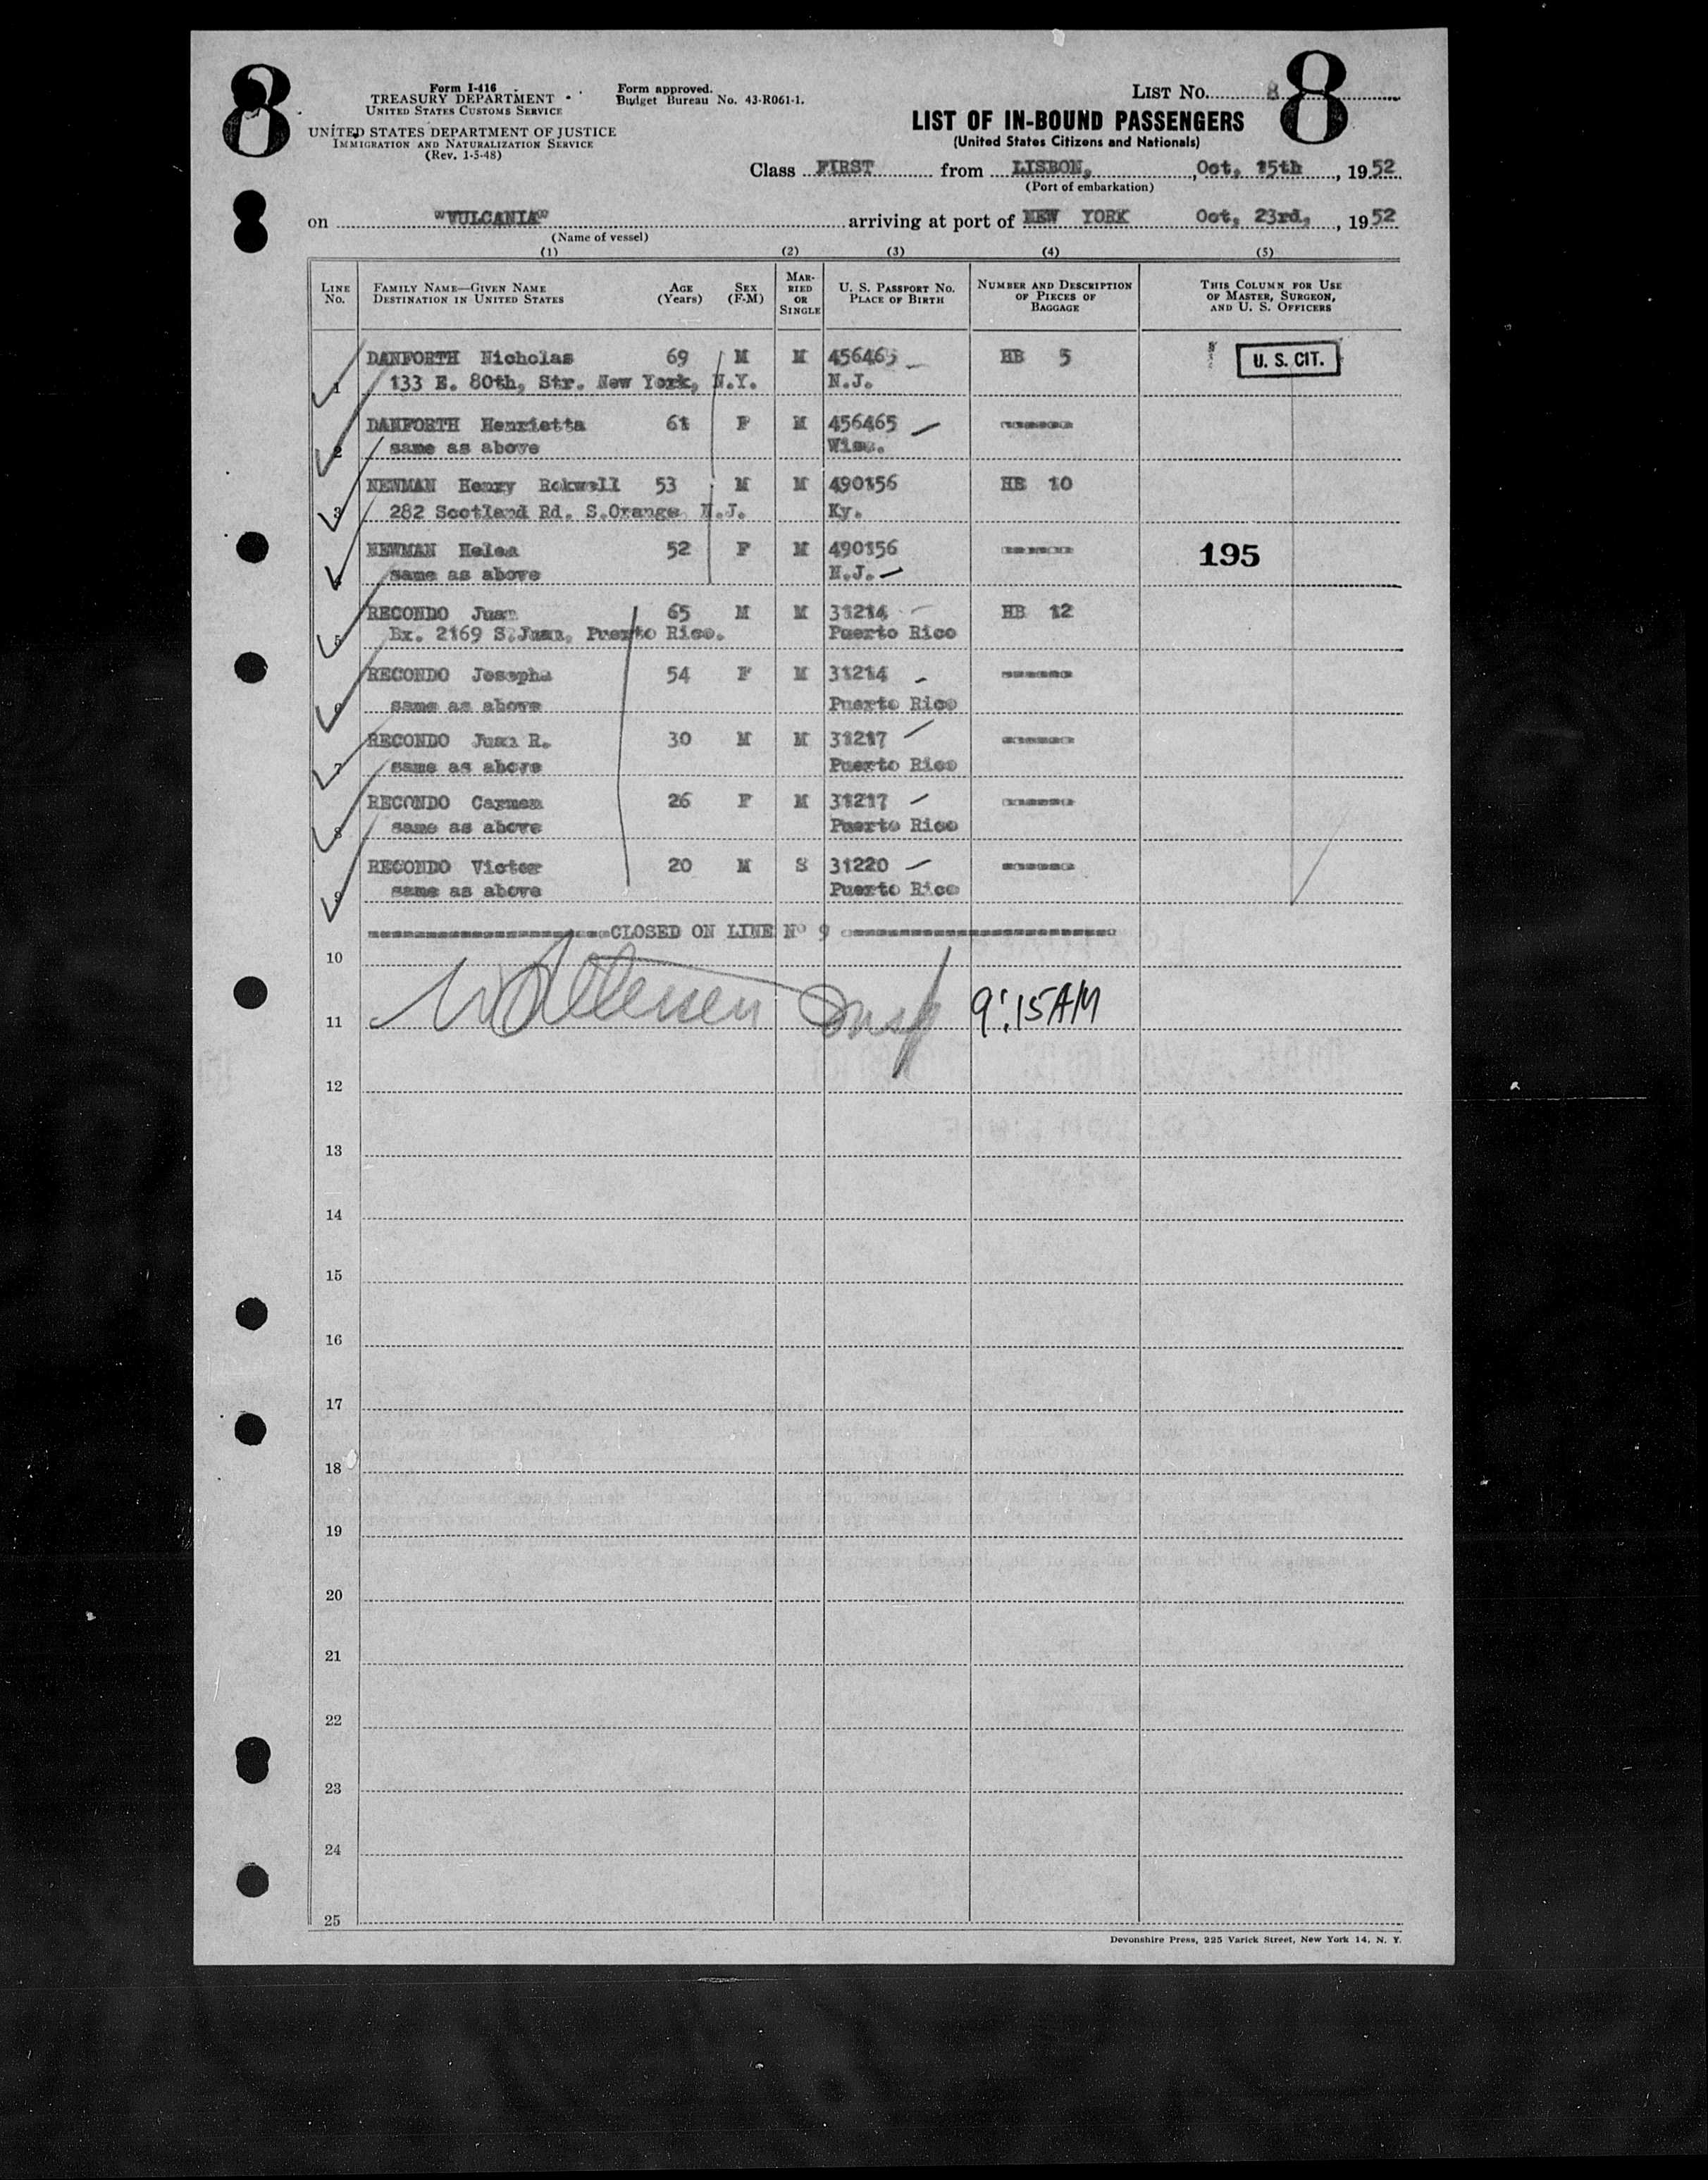 8
8
Form I-416
TREASURY DEPARTMENT
UNITED STATES CUSTOMS SERVICE
UNITED STATES DEPARTMENT OF JUSTICE
IMMIGRATION AND NATURALIZATION SERVICE
(Rev. 1-5-48)
Form approved.
Budget Bureau No. 43-R061-1.
LIST NO. 8
LIST OF IN-BOUND PASSENGERS
(United States Citizens and Nationals)
Class FIRST from LISBON, , Oct, 15th , 19 52
(Port of embarkation)
on "VULCANIA" arriving at port of NEW YORK Oct, 23rd, , 19 52
(Name of vessel)
(1) (2) (3) (4) (5)
LINE No. FAMILY NAME—GIVEN NAME DESTINATION IN UNITED STATES AGE (Years) SEX (F-M) MARRIED OR SINGLE U. S. PASSPORT NO. PLACE OF BIRTH NUMBER AND DESCRIPTION OF PIECES OF BAGGAGE THIS COLUMN FOR USE OF MASTER, SURGEON, AND U. S. OFFICERS
DANFORTH Nicholas 69 M M 456465 HB 5 U. S. CIT.
1 133 E. 80th, Str. New York, N.Y. N.J.
DANFORTH Henrietta 61 F M 456465
2 same as above Wisc.
NEWMAN Henry Rokwell 53 M M 490156 HB 10
3 282 Scotland Rd. S.Orange N.J. Ky.
NEWMAN Helen 52 F M 490156 195
4 same as above N.J.
RECONDO Juan 65 M M 31214 HB 12
5 Bx. 2169 S.Juan, Puerto Rico. Puerto Rico
RECONDO Josepha 54 F M 31214
6 same as above Puerto Rico
RECONDO Juan R. 30 M M 31217
7 same as above Puerto Rico
RECONDO Carmen 26 F M 31217
8 same as above Puerto Rico
RECONDO Victor 20 M S 31220
9 same as above Puerto Rico
CLOSED ON LINE Nº 9
10
11 Insp 9:15 AM
12
13
14
15
16
17
18
19
20
21
22
23
24
25
Devonshire Press, 225 Varick Street, New York 14, N. Y.